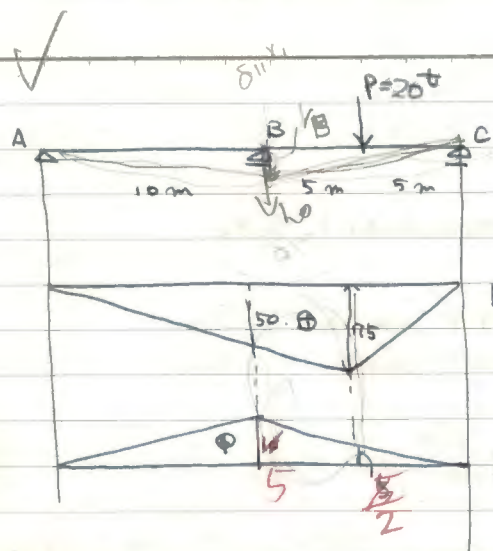 δ11 X1
P=20t
A B C
10 m 5 m 5 m
50 ⊕ 75
5
5/2